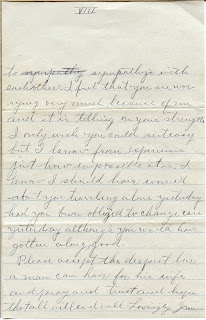 VIII
to sympathy sympathize with
each other. I feel that you are wor-
rying very much because of me
and it is telling on your strength
I only wish you could rest easy
but I know from experience
just how impossible it is. I
know I should have worried
about you traveling alone yesterday
had you been obliged to change cars
yesterday although you would have
gotten along good.
Please accept the deepest love
a man can have for his wife
and pray and trust and hope
that all will end well. Lovingly